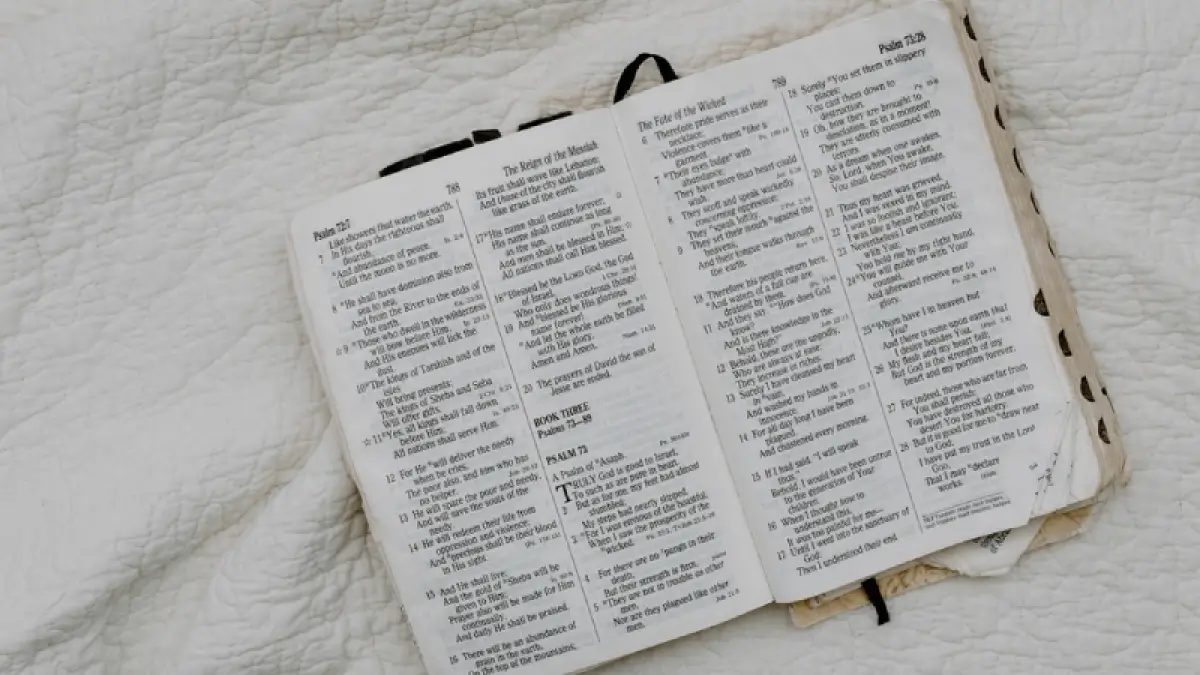 Psalm 72:7
788
The Reign of the Messiah
Like showers that water the earth.
7 In His days the righteous shall
flourish,
And abundance of peace,
Until the moon is no more.
8 He shall have dominion also from
sea to sea,
And from the River to the ends of
the earth.
9 Those who dwell in the wilderness
will bow before Him,
And His enemies will lick the
dust.
10 The kings of Tarshish and of the
isles
Will bring presents;
The kings of Sheba and Seba
Will offer gifts.
11 Yes, all kings shall fall down
before Him;
All nations shall serve Him.
12 For He will deliver the needy
when he cries,
The poor also, and him who has
no helper.
13 He will spare the poor and needy,
And will save the souls of the
needy.
14 He will redeem their life from
oppression and violence;
And precious shall be their blood
in His sight.
15 And He shall live;
And the gold of Sheba will be
given to Him;
Prayer also will be made for Him
continually,
And daily He shall be praised.
16 There will be an abundance of
grain in the earth,
On the top of the mountains;
Its fruit shall wave like Lebanon;
And those of the city shall flourish
like grass of the earth.
17 His name shall endure forever;
His name shall continue as long
as the sun.
And men shall be blessed in Him;
All nations shall call Him blessed.
18 Blessed be the LORD God, the God
of Israel,
Who only does wondrous things!
19 And blessed be His glorious
name forever!
And let the whole earth be filled
with His glory.
Amen and Amen.
20 The prayers of David the son of
Jesse are ended.
BOOK THREE
Psalms 73—89
PSALM 73
A Psalm of Asaph.
TRULY God is good to Israel,
To such as are pure in heart.
2 But as for me, my feet had almost
stumbled;
My steps had nearly slipped.
3 For I was envious of the boastful,
When I saw the prosperity of the
wicked.
4 For there are no pangs in their
death,
But their strength is firm.
5 They are not in trouble as other
men,
Nor are they plagued like other
men.
The Fate of the Wicked
789
Psalm 73:28
6 Therefore pride serves as their
necklace;
Violence covers them like a
garment.
7 Their eyes bulge with
abundance;
They have more than heart could
wish.
8 They scoff and speak wickedly
concerning oppression;
They speak loftily.
9 They set their mouth against the
heavens,
And their tongue walks through
the earth.
10 Therefore his people return here,
And waters of a full cup are
drained by them.
11 And they say, "How does God
know?
And is there knowledge in the
Most High?"
12 Behold, these are the ungodly,
Who are always at ease;
They increase in riches.
13 Surely I have cleansed my heart
in vain,
And washed my hands in
innocence.
14 For all day long I have been
plagued,
And chastened every morning.
15 If I had said, "I will speak
thus,"
Behold, I would have been untrue
to the generation of Your
children.
16 When I thought how to
understand this,
It was too painful for me—
17 Until I went into the sanctuary of
God;
Then I understood their end
18 Surely You set them in slippery
places;
You cast them down to
destruction.
19 Oh, how they are brought to
desolation, as in a moment!
They are utterly consumed with
terrors.
20 As a dream when one awakes,
So, Lord, when You awake,
You shall despise their image.
21 Thus my heart was grieved,
And I was vexed in my mind.
22 I was so foolish and ignorant;
I was like a beast before You.
23 Nevertheless I am continually
with You;
You hold me by my right hand.
24 You will guide me with Your
counsel,
And afterward receive me to
glory.
25 Whom have I in heaven but
You?
And there is none upon earth that
I desire besides You.
26 My flesh and my heart fail;
But God is the strength of my
heart and my portion forever.
27 For indeed, those who are far from
You shall perish;
You have destroyed all those who
desert You for harlotry.
28 But it is good for me to draw near
to God;
I have put my trust in the Lord
GOD,
That I may declare
works.